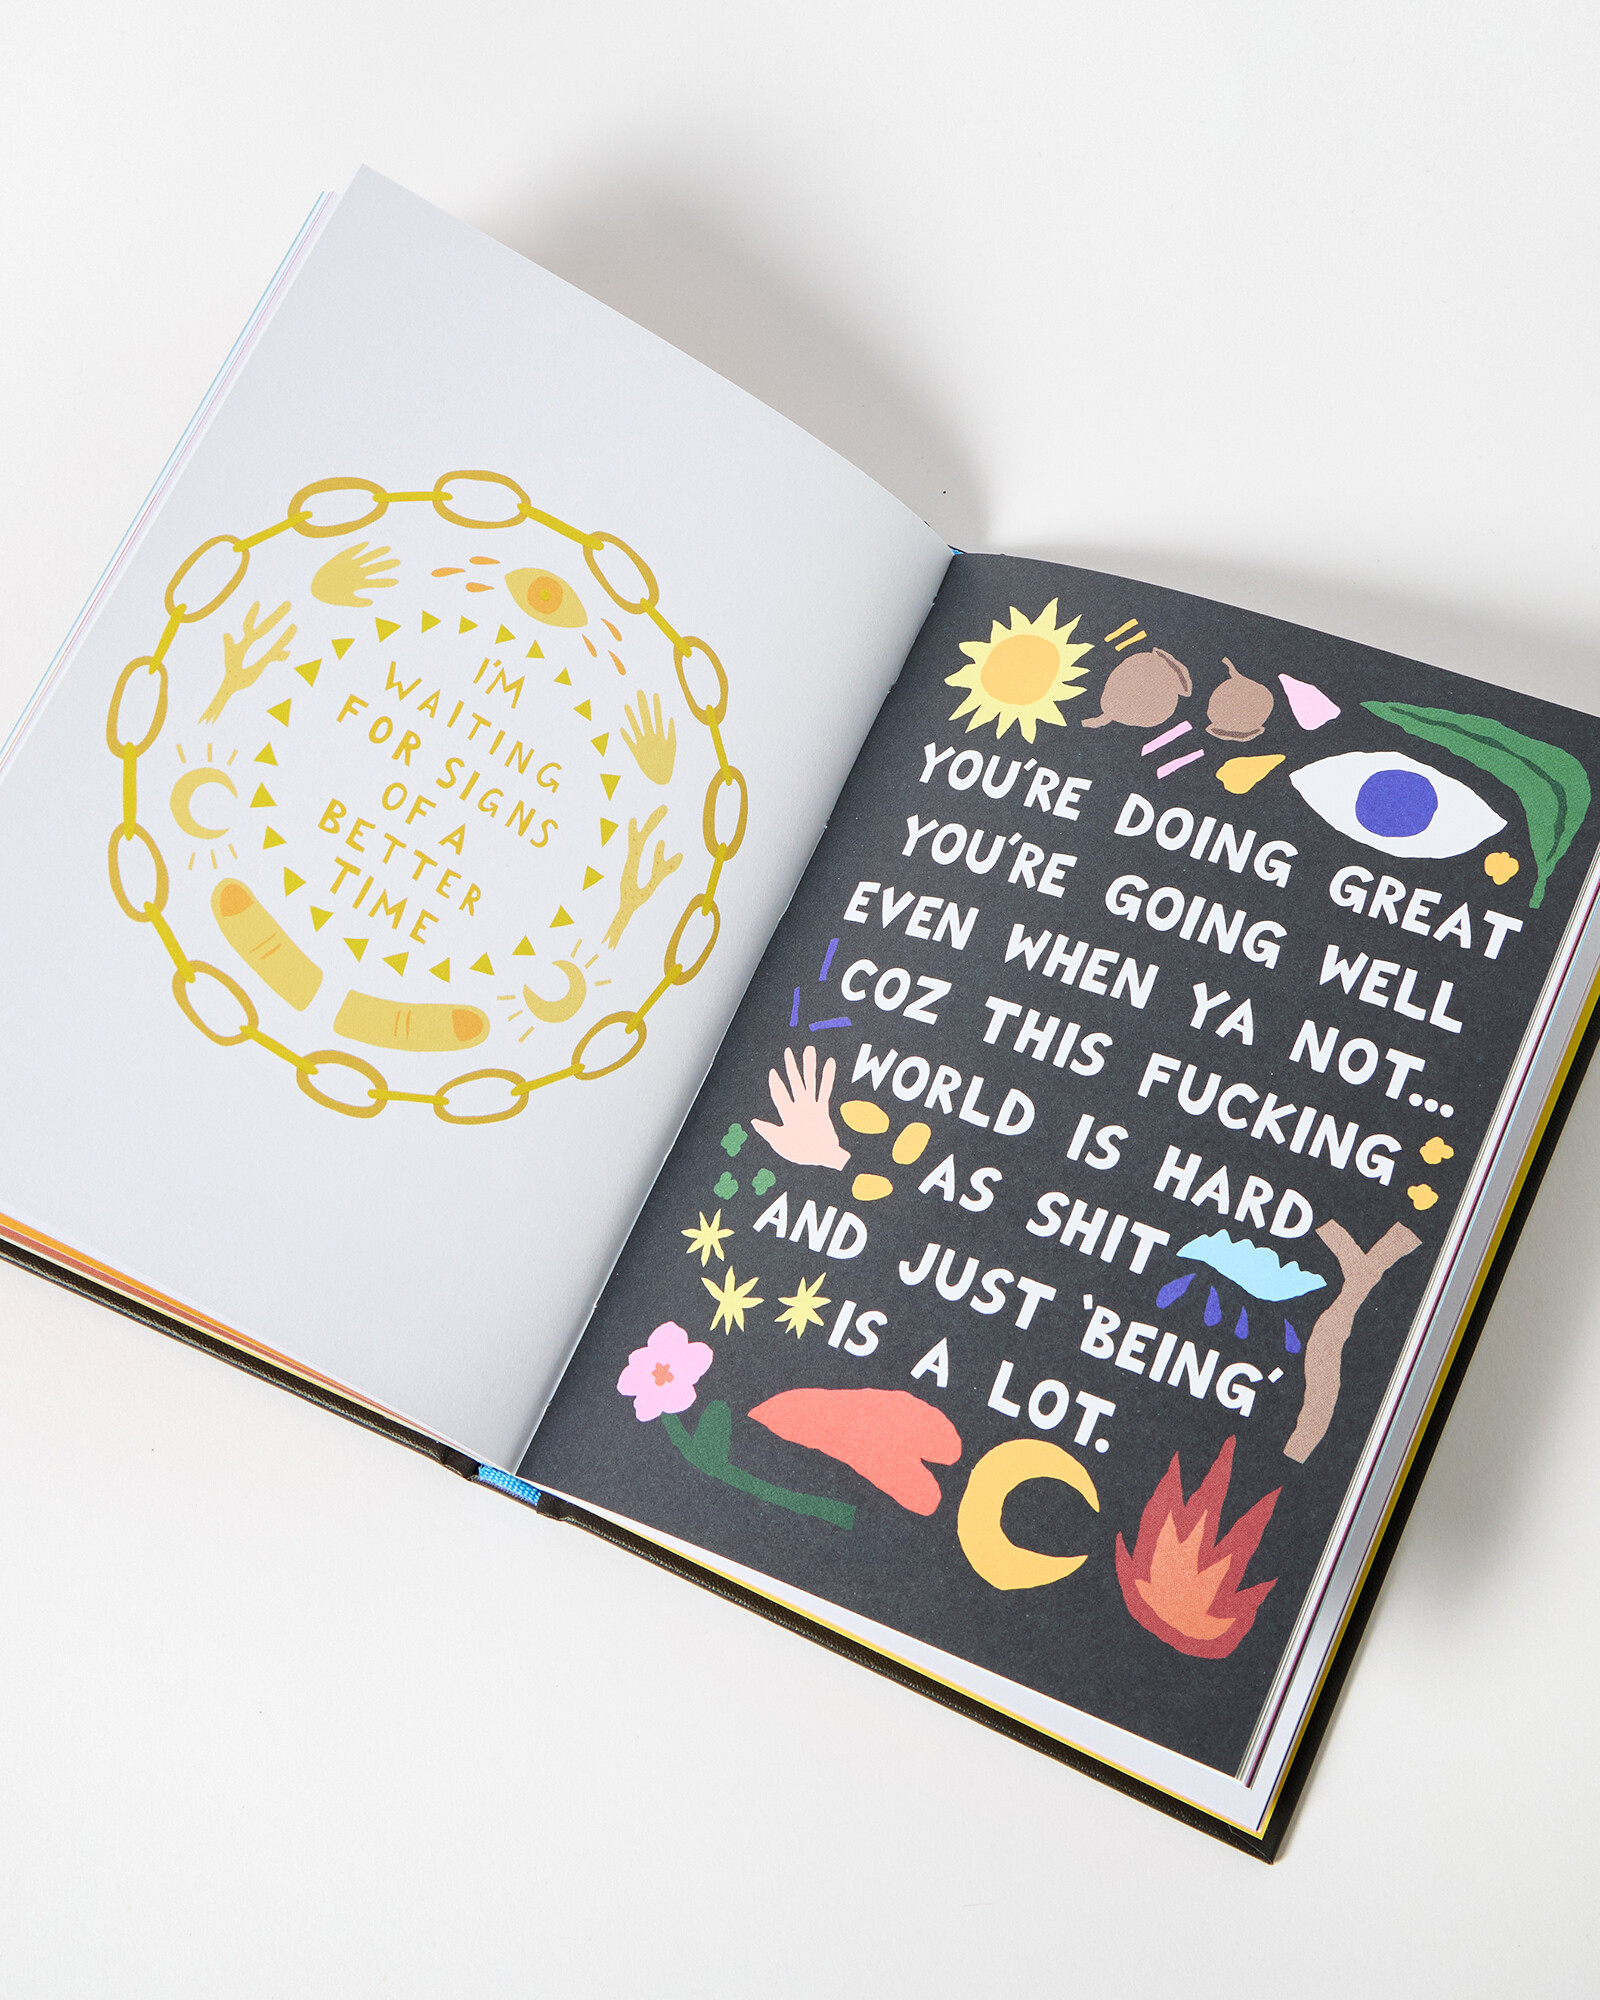 I'M
WAITING
FOR SIGNS
OF A
BETTER
TIME
YOU'RE DOING GREAT
YOU'RE GOING WELL
EVEN WHEN YA NOT...
COZ THIS FUCKING
WORLD IS HARD
AS SHIT
AND JUST 'BEING'
IS A LOT.